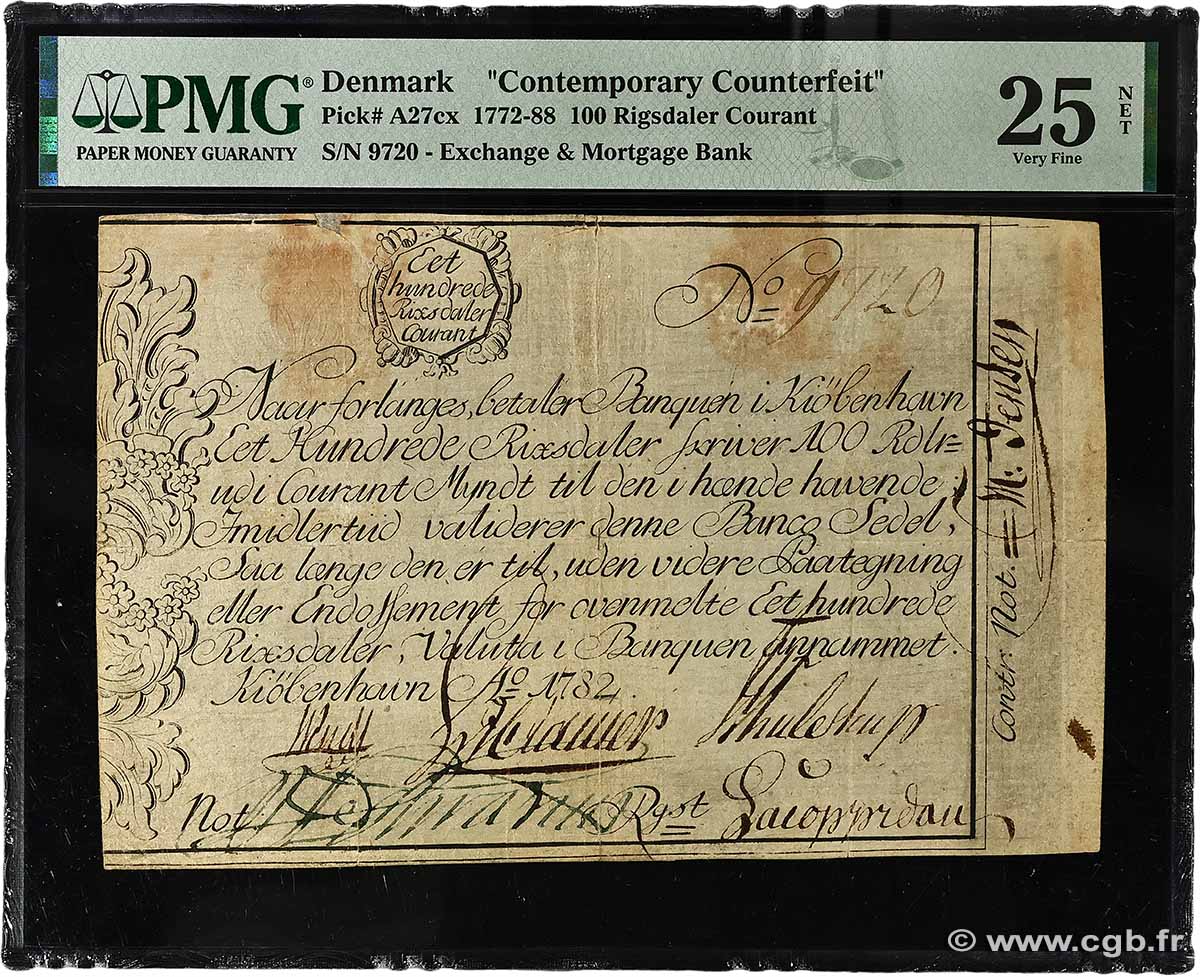 PMG®
PAPER MONEY GUARANTY
Denmark "Contemporary Counterfeit"
Pick# A27cx 1772-88 100 Rigsdaler Courant
S/N 9720 - Exchange & Mortgage Bank
25
NET
Very Fine
Eet
hundrede
Rixsdaler
Courant
No 9720
Naar forlanges, betaler Banquen i Kiöbenhavn
Eet Hundrede Rixsdaler skriver 100 Rdlr=
udi Courant Myndt til den i hænde havende
Imidlertiid validerer denne Banco Sedel,
Saa længe den er til, uden videre Paategning
eller Endossement for ovenmelte Eet hundrede
Rixsdaler, Valuta i Banquen annammet.
Kiöbenhavn Ao 1782.
Not
Rgst
Contr: Not. = M. Jensen
© www.cgb.fr